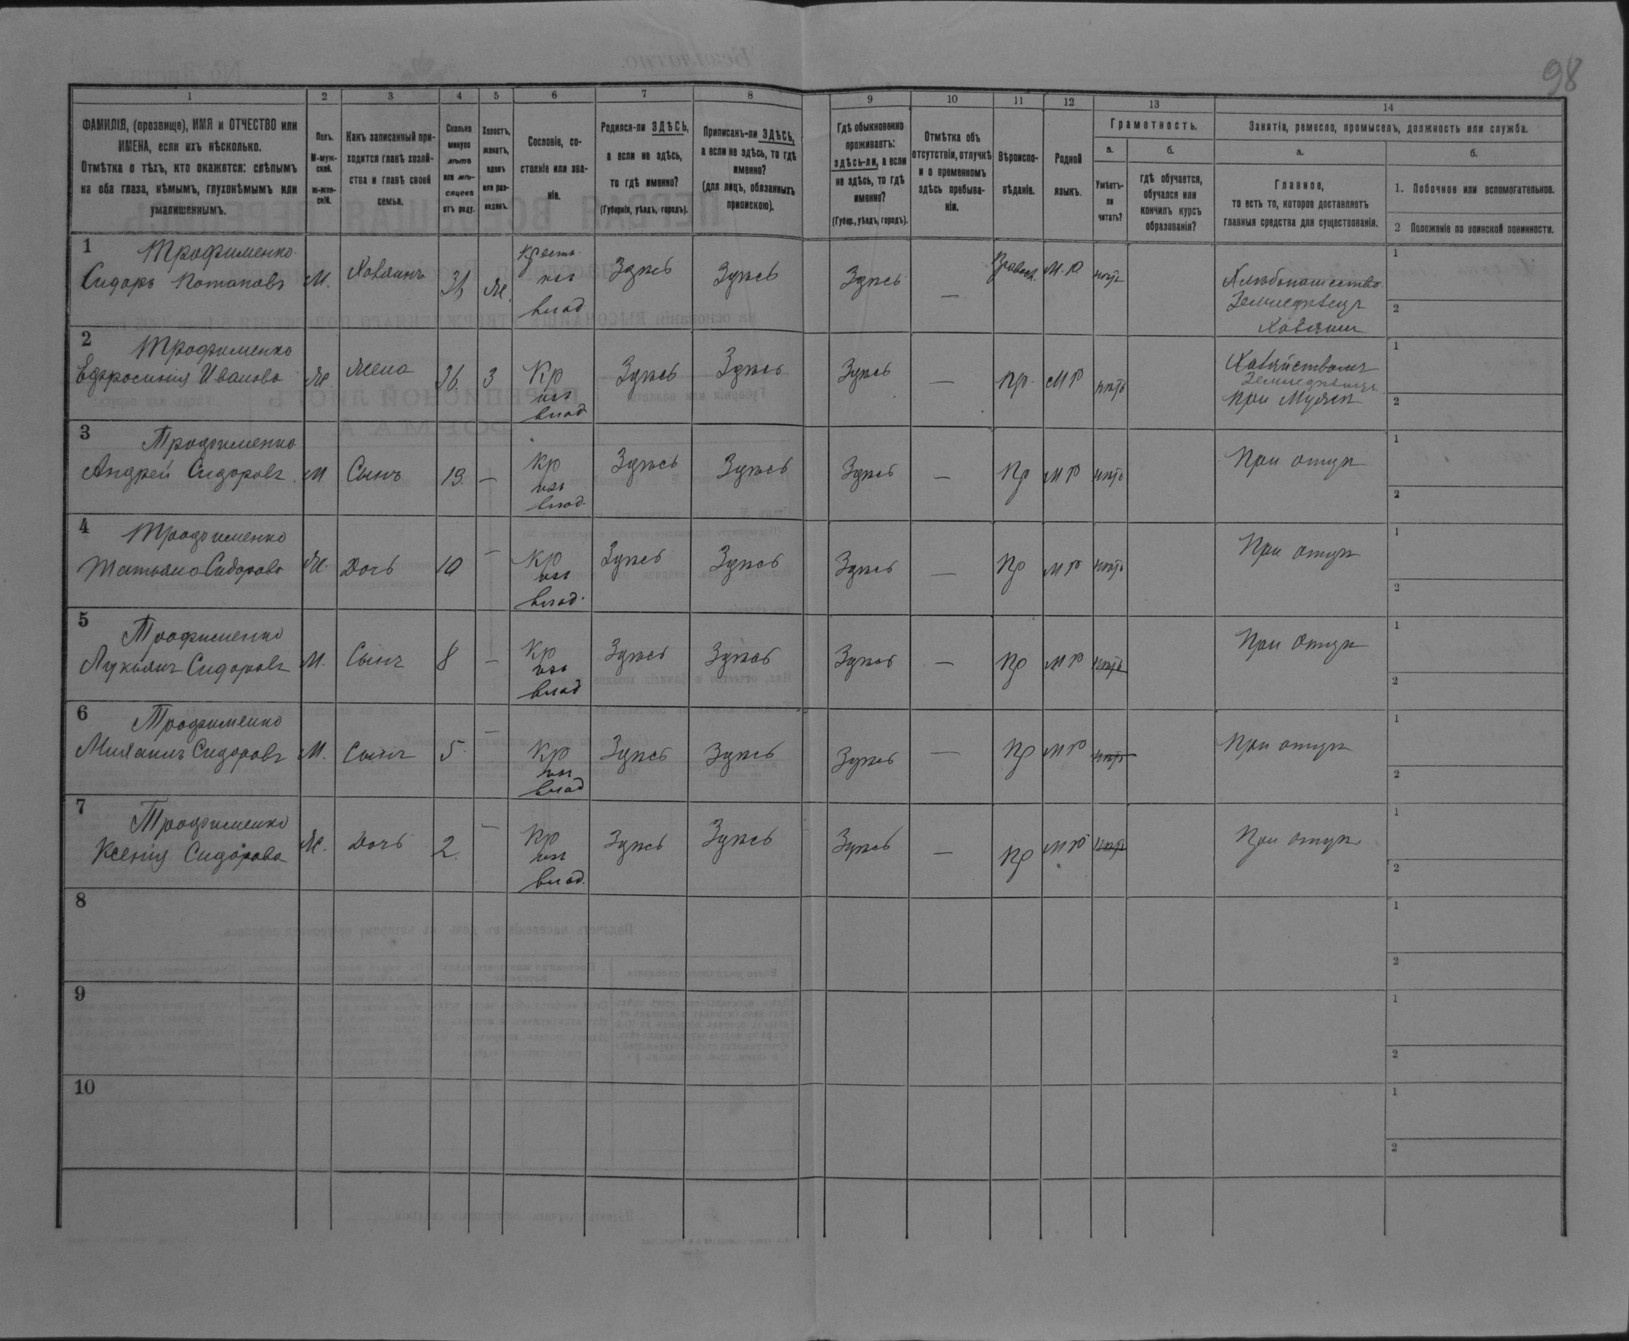 98
1 2 3 4 5 6 7 8 9 10 11 12 13 14
ФАМИЛІЯ, (прозвище), ИМЯ и ОТЧЕСТВО или
ИМЕНА, если ихъ нѣсколько.
Отмѣтка о тѣхъ, кто окажется: слѣпымъ
на оба глаза, нѣмымъ, глухонѣмымъ или
умалишеннымъ.
Полъ.
М-муж-
ской.
ж-жен-
скій.
Какъ записанный при-
ходится главѣ хозяй-
ства и главѣ своей
семьи.
Сколько
минуло
лѣтъ
или мѣ-
сяцевъ
отъ роду.
Холостъ,
женатъ,
вдовъ
или раз-
веденъ.
Сословіе, со-
стояніе или зва-
ніе.
Родился-ли ЗДѢСЬ,
а если не здѣсь,
то гдѣ именно?
(Губернія, уѣздъ, городъ).
Приписанъ-ли ЗДѢСЬ,
а если не здѣсь, то гдѣ
именно?
(для лицъ, обязанныхъ
припискою).
Гдѣ обыкновенно
проживаетъ:
здѣсь-ли, а если
не здѣсь, то гдѣ
именно?
(Губер., уѣздъ, городъ).
Отмѣтка объ
отсутствіи, отлучкѣ
и о временномъ
здѣсь пребыва-
ніи.
Вѣроиспо-
вѣданіе.
Родной
языкъ.
Грамотность.
а.
Умѣетъ-
ли
читать?
б.
гдѣ обучается,
обучался или
кончилъ курсъ
образованія?
Занятія, ремесло, промыселъ, должность или служба.
а.
Главное,
то есть то, которое доставляетъ
главныя средства для существованія.
б.
1. Побочное или вспомогательное.
2 Положеніе по воинской повинности.
1 Трофименко
Сидоръ Потаповъ М. Хозяинъ 36 Же. Крестъ. изъ влад Здѣсь Здѣсь Здѣсь — Правосл. М.Р нѣтъ Хлѣбопашество
Земледѣлецъ
Хозяин
1
2
2 Трофименко
Ефросинія Иванова Же. Жена 36 З Кр изъ влад Здѣсь Здѣсь Здѣсь — Пр. М Р нѣтъ Хозяйством
Земледѣлецъ
при Мужѣ
1
2
3 Трофименко
Андрей Сидоровъ М Сынъ 13 — Кр изъ влад Здѣсь Здѣсь Здѣсь — Пр М Р нѣтъ При отцѣ
1
2
4 Трофименко
Татьяна Сидорова Же. Дочь 10 — Кр изъ влад. Здѣсь Здѣсь Здѣсь — Пр М Р нѣтъ При отцѣ
1
2
5 Трофименко
Лукіанъ Сидоровъ М. Сынъ 8 — Кр изъ влад Здѣсь Здѣсь Здѣсь — Пр М Р нѣтъ При отцѣ
1
2
6 Трофименко
Михаилъ Сидоровъ М. Сынъ 5 — Кр изъ влад Здѣсь Здѣсь Здѣсь — Пр М Р нѣтъ При отцѣ
1
2
7 Трофименко
Ксенія Сидорова Же. Дочь 2. — Кр изъ влад. Здѣсь Здѣсь Здѣсь — Пр М Р нѣтъ При отцѣ
1
2
8
1
2
9
1
2
10
1
2